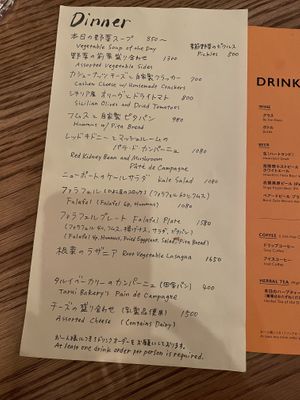 Dinner
本日の野菜スープ 850〜
Vegetable Soup of the Day
季節野菜のピクルス
Pickles 500
野菜の前菜盛り合わせ 1300
Assorted Vegetable Sides
カシューナッツチーズと自家製クラッカー 700
Cashew Cheese w/ Homemade Crackers
シチリア産オリーヴとドライトマト 800
Sicilian Olives and Dried Tomatoes
フムスと自家製ピタパン 980
Hummus w/ Pita Bread
レッドキドニーとマッシュルームの
パテ・ド・カンパーニュ 1080
Red Kidney Bean and Mushroom
Pâté de Campagne
ニューポートのケールサラダ Kale Salad 1080
ファラフェル
Falafel (Falafel 4p, Hummus) 1080
ファラフェルプレート Falafel Plate 1580
(ファラフェル4p, フムス, 揚げナス, サラダ, ピタパン)
(Falafel 4p, Hummus, Fried Eggplant, Salad, Pita Bread)
根菜のラザニア Root Vegetable Lasagna 1650
タルイベーカリーのカンパーニュ (田舎パン) 400
Tarui Bakery's Pain de Campagne
チーズの盛り合わせ (乳製品使用) 1500
Assorted Cheese (Contains Dairy)
お一人様につき1ドリンクオーダーをお願いしております。
At least one drink order per person is required.
DRINK
WINE
BEER
COFFEE
ドリップコーヒー
アイスコーヒー
HERBAL TEA